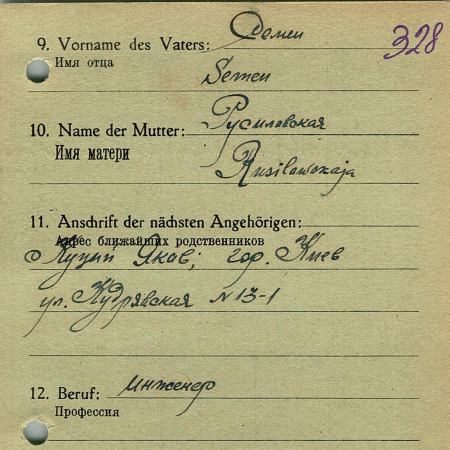 9. Vorname des Vaters: Семен 328
Имя отца
Semen
10. Name der Mutter: Русиловская
Имя матери
Rusilowskaja
11. Anschrift der nächsten Angehörigen:
Адрес ближайших родственников
Куций Яков; гор. Киев
ул. Кудрявская N 13-1
12. Beruf: инженер
Профессия